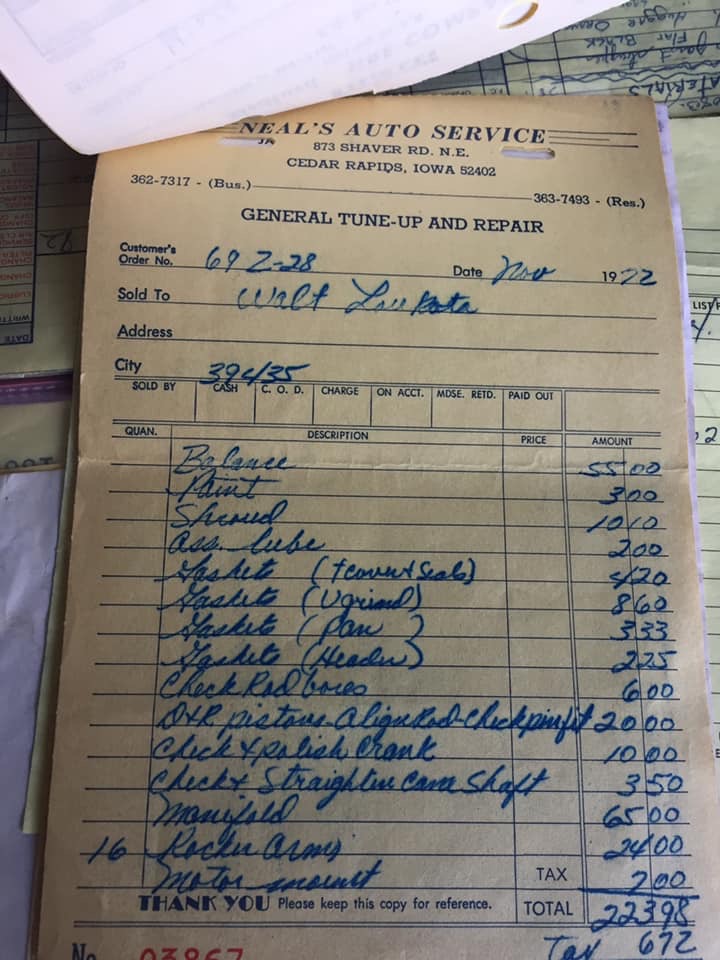 Flat Black
NEAL'S AUTO SERVICE
JR
873 SHAVER RD. N.E.
CEDAR RAPIDS, IOWA 52402
362-7317 - (Bus.) 363-7493 - (Res.)
GENERAL TUNE-UP AND REPAIR
Customer's Order No. 69 Z-28 Date Nov 1972
Sold To Walt Loukota
Address
City
SOLD BY CASH C. O. D. CHARGE ON ACCT. MDSE. RETD. PAID OUT
QUAN. DESCRIPTION PRICE AMOUNT
Balance 55 00
Paint 3 00
Shroud 10 10
Ass. lube 2 00
Gaskets (F cover & Seals) 4 20
Gaskets (V grind) 8 60
Gaskets (Pan) 3 33
Gaskets (Header) 2 25
Check Rod bores 6 00
D&R pistons-Align Rod-Check pin fit 20 00
Check & polish Crank 10 00
Check & Straighten Cam Shaft 3 50
Manifold 65 00
16 Rocker Arms 24 00
Motor mount TAX 7 00
THANK YOU Please keep this copy for reference. TOTAL 223 98
No. 03867 Tax 6 72